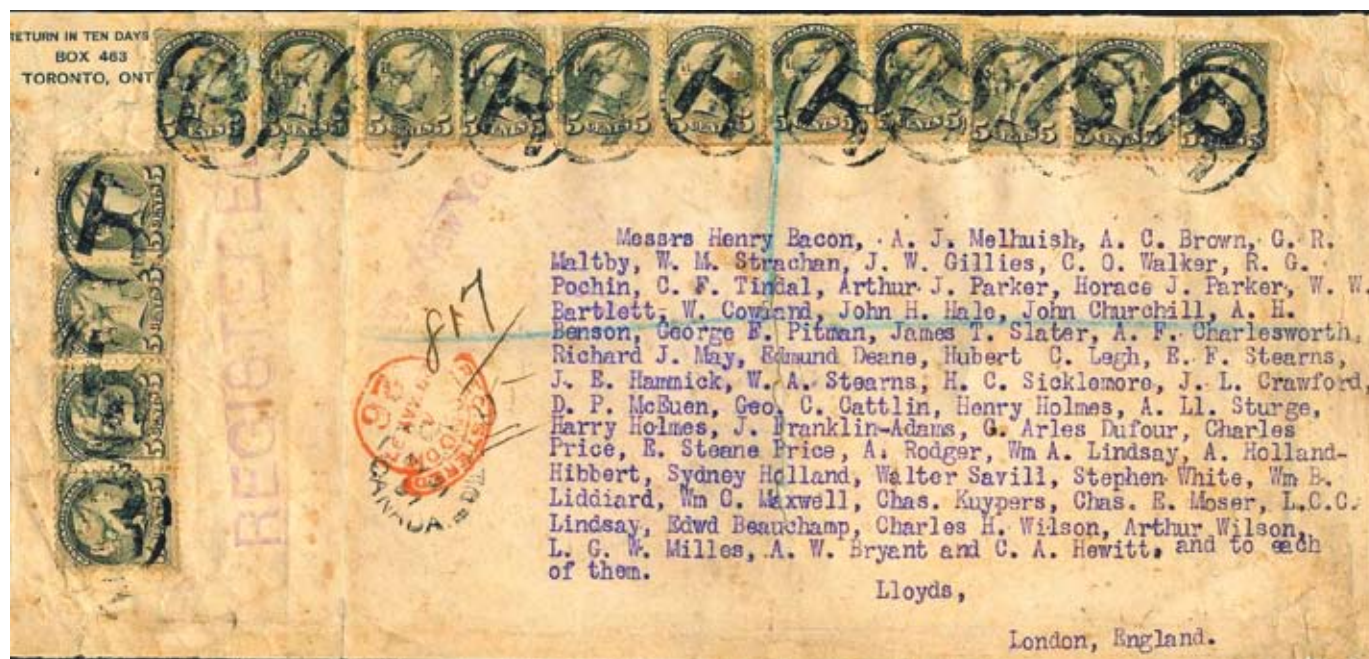 RETURN IN TEN DAYS
BOX 463
TORONTO, ONT
5 CENTS 5
REGISTERED
New Yo
817
REGISTERED
LONDON
CANADA
Messrs Henry Bacon, A. J. Melhuish, A. C. Brown, G. R.
Maltby, W. M. Strachan, J. W. Gillies, C. O. Walker, R. G.
Pochin, C. F. Tindal, Arthur J. Parker, Horace J. Parker, W. W.
Bartlett, W. Cowland, John H. Hale, John Churchill, A. H.
Benson, George F. Pitman, James T. Slater, A. F. Charlesworth,
Richard J. May, Edmund Deane, Hubert C. Legh, E. F. Stearns,
J. E. Hammick, W. A. Stearns, H. C. Sicklemore, J. L. Crawford,
D. P. McEuen, Geo. C. Cattlin, Henry Holmes, A. Ll. Sturge,
Harry Holmes, J. Franklin-Adams, G. Arles Dufour, Charles
Price, E. Steane Price, A. Rodger, Wm A. Lindsay, A. Holland-
Hibbert, Sydney Holland, Walter Savill, Stephen White, Wm B.
Liddiard, Wm C. Maxwell, Chas. Kuypers, Chas. E. Moser, L.C.C.
Lindsay, Edwd Beauchamp, Charles H. Wilson, Arthur Wilson,
L. G. W. Milles, A. W. Bryant and C. A. Hewitt, and to each
of them.
Lloyds,
London, England.